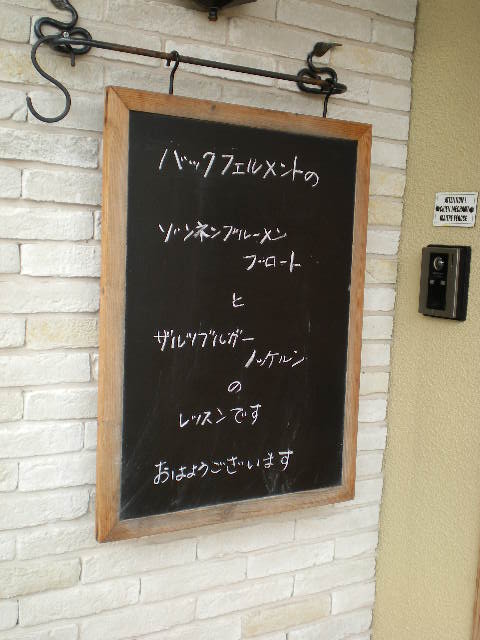 バックフェルメントの
ゾンネンブルーメン
ブロート
と
ザルツブルガー
ノッケルン
の
レッスンです
おはようございます